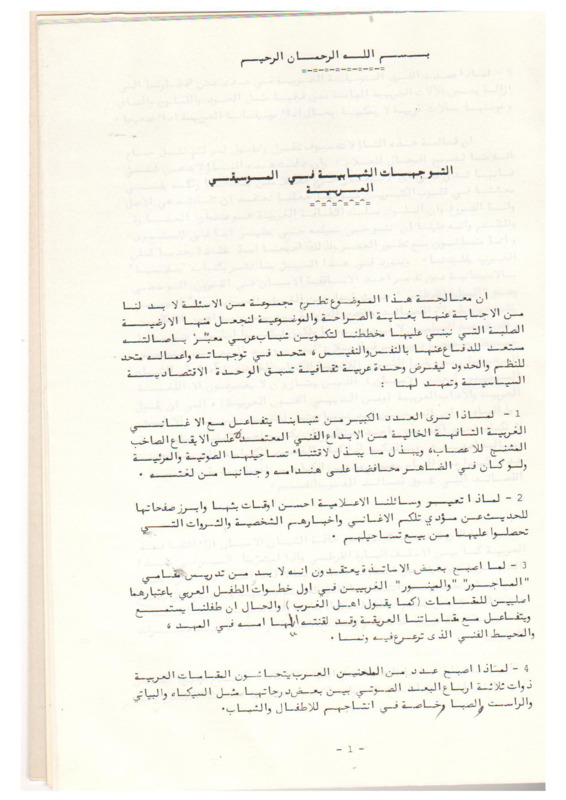 بسم الله الرحمان الرحيم
التوجهات الشبابية في الموسيقى
العربية
ان معالجة هذا الموضوع تطرح مجموعة من الاسئلة لا بد لنا
من الاجابة عنها بغاية الصراحة والموضوعية لنجعل منها الارضية
الصلبة التي نبني عليها مخططنا لتكوين شباب عربي معبّز باصالته
مستعد للدفاع عنها بالنفس والنفيس، متحد في توجهاته واعماله متحد
للنظم والحدود ليفرض وحدة عربية ثقافية تسبق الوحدة الاقتصادية
السياسية وتمهد لها :
1 - لماذا نرى العدد الكبير من شبابنا يتفاعل مع الاغاني
الغربية التافهة الخالية من الابداع الفني المعتمدة على الايقاع الصاخب
المشنج للاعصاب، ويبذل ما يبذل لاقتناء تساجيلها الصوتية والمرئية
ولو كان في الضاهر محافضا على هندامه وجانبا من لغته .
2 - لماذا تعير وسائلنا الاعلامية احسن اوقات بثها وابرز صفحاتها
للحديث عن مؤدي تلكم الاغاني واخبارهم الشخصية والثروات التي
تحصلوا عليها من بيع تساجيلهم .
3 - لما اصبح بعض الاساتذة يعتقدون انه لا بد من تدريس مقامي
"الماجور" "والمينور" الغربيين في اول خطوات الطفل العربي باعتبارهما
اصليين للمقامات (كما يقول اهل الغرب) والحال ان طفلنا يستمع
ويتفاعل مع مقاماتنا العريقة وقد لقنته اياها امه في المهد،
والمحيط الفني الذى ترعرع فيه ونما .
4 - لماذا اصبح عدد من الملحنين العرب يتحاشون المقامات العربية
ذوات ثلاثة ارباع البعد الصوتي بين بعض درجاتها مثل السيكاه والبياتي
والراست والصبا وخاصة في انتاجهم للاطفال والشباب.
- 1 -